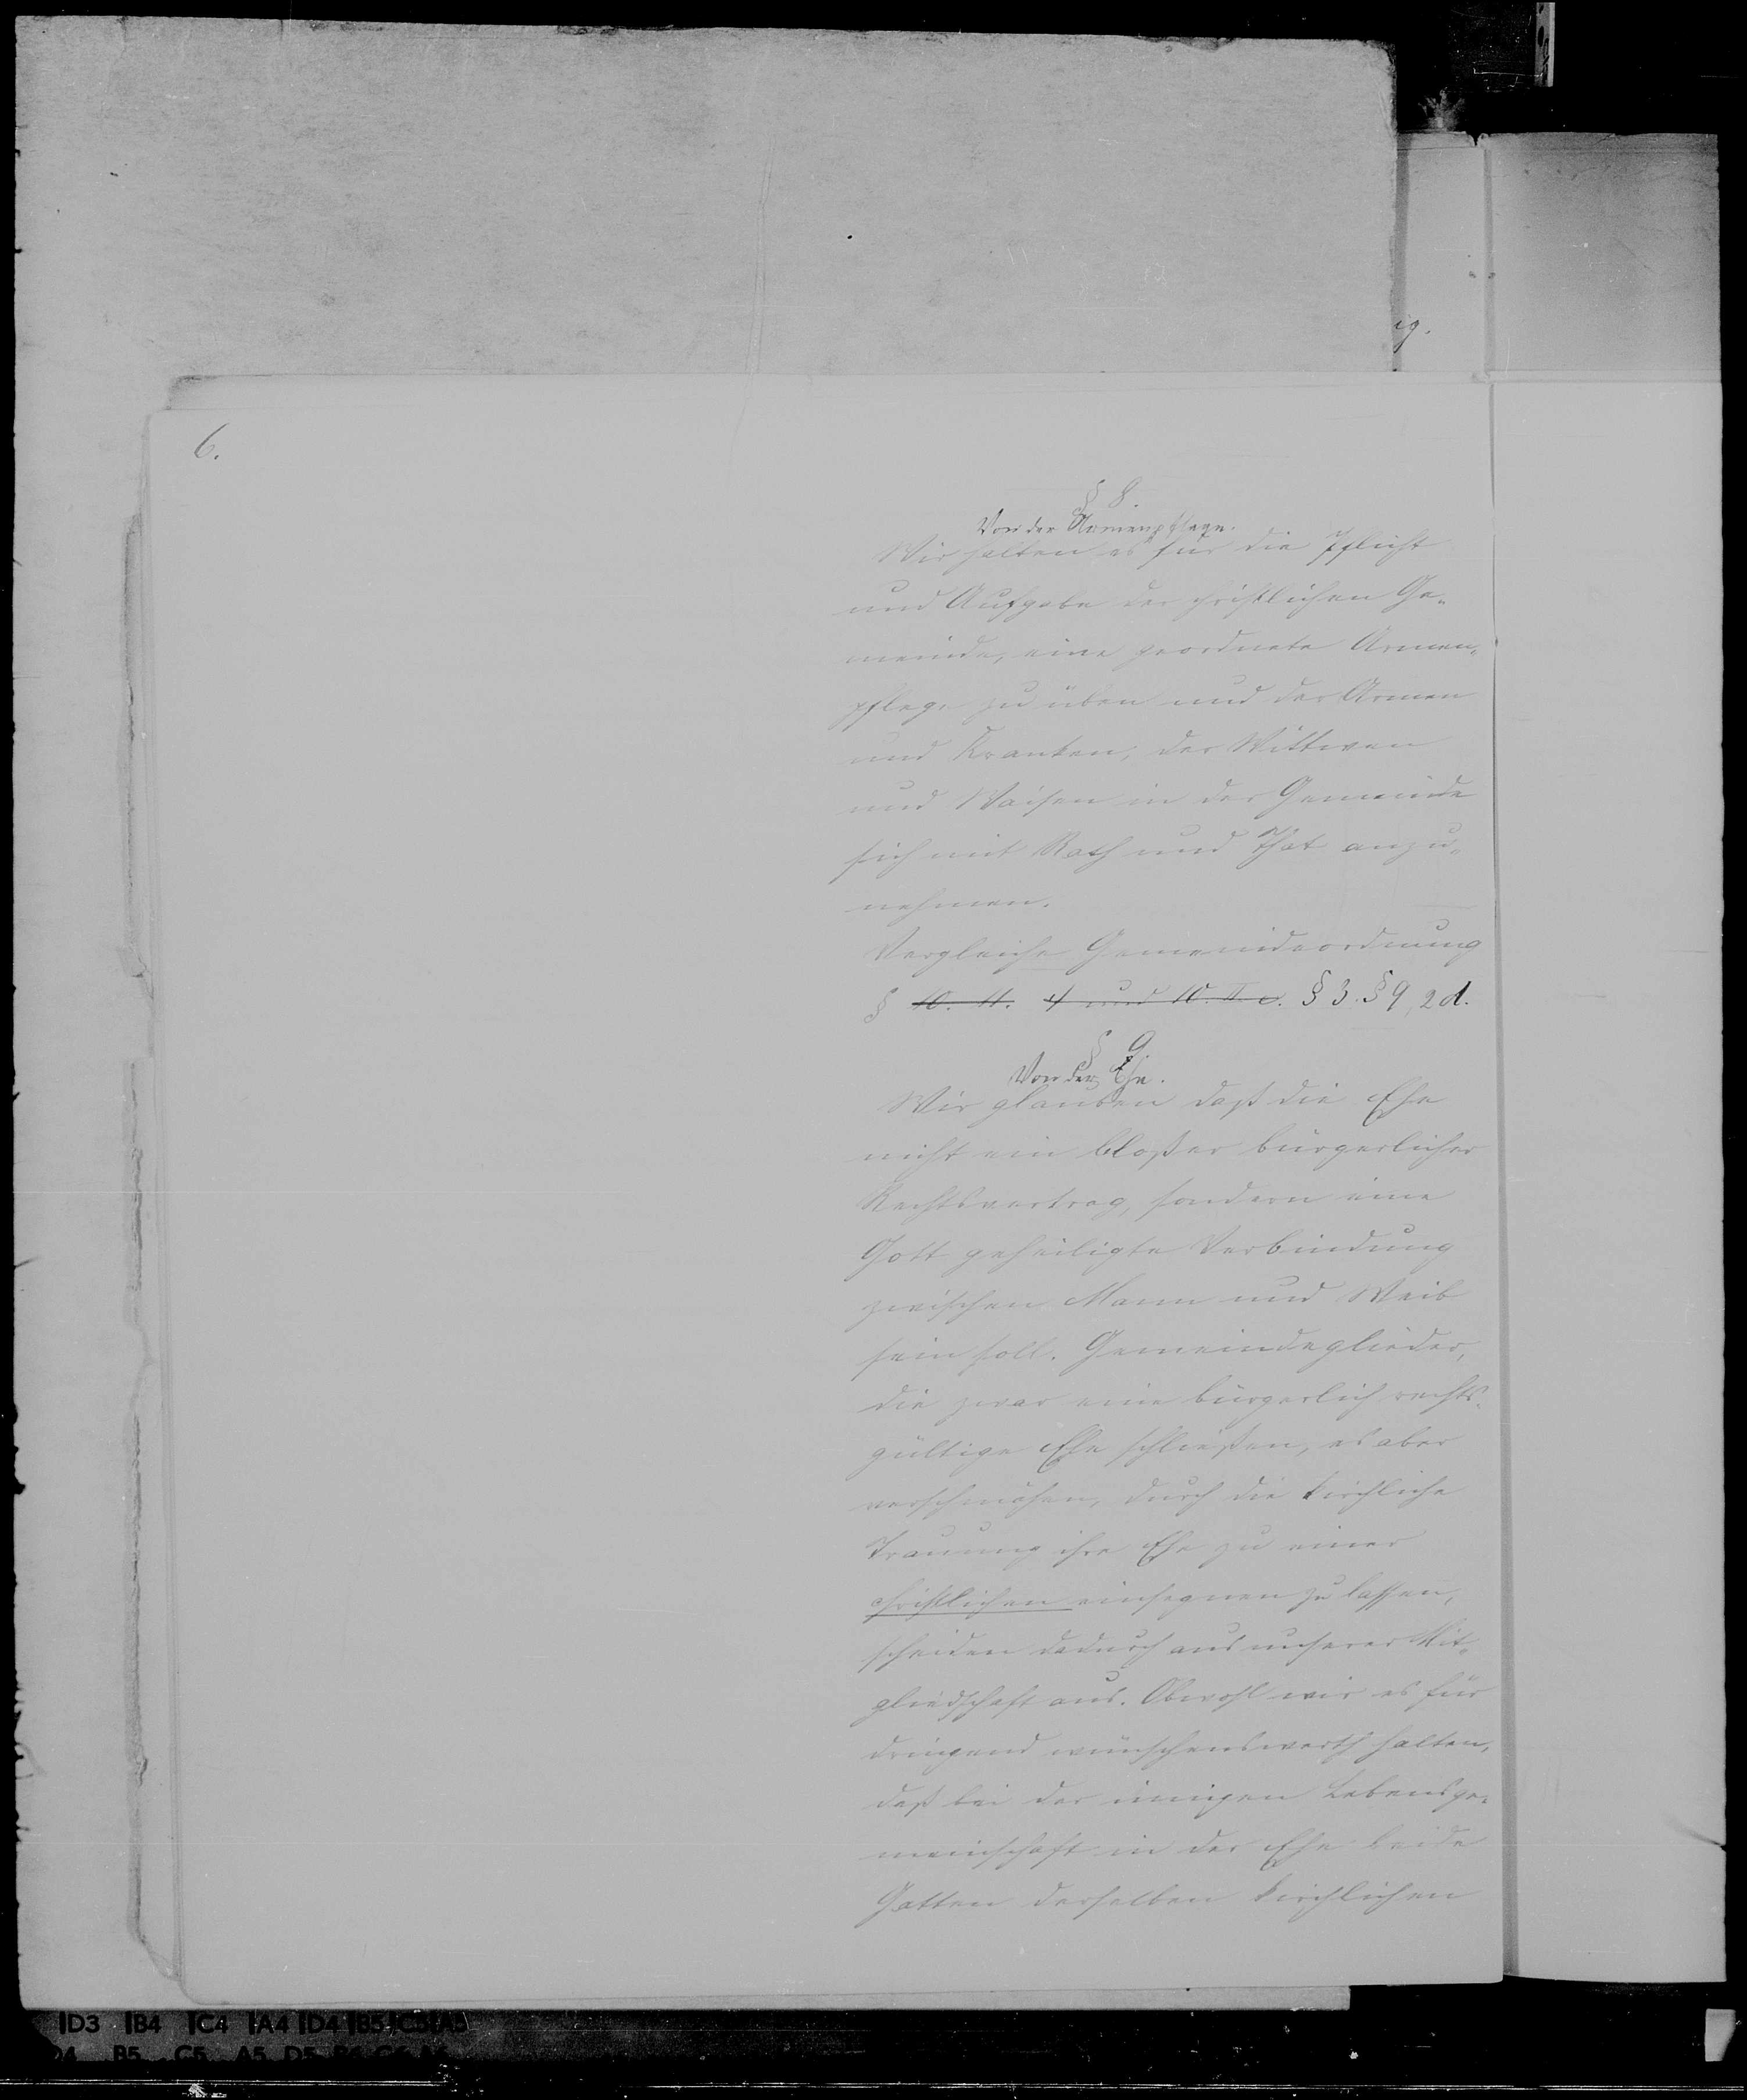 ig.
6.
§ 8.
Von der Armenpflege.
Wir halten es für die Pflicht
und Aufgabe der christlichen Ge-
meinde, eine geordnete Armen-
pflege zu üben und der Armen
und Kranken, der Wittwen
und Waisen in der Gemeinde
sich mit Rath und That anzu-
nehmen.
Vergleiche Gemeindeordnung
§ 10. 11. 4 und 10. II. c. § 3. § 9, 2 d.
§ 9.
Von der Ehe.
Wir glauben daß die Ehe
nicht ein bloßer bürgerlicher
Rechtsvertrag, sondern eine
Gott geheiligte Verbindung
zwischen Mann und Weib
sein soll. Gemeindeglieder,
die zwar eine bürgerlich rechts-
gültige Ehe schließen, es aber
verschmähen, durch die kirchliche
Trauung ihre Ehe zu einer
christlichen einsegnen zu lassen,
scheiden dadurch aus unserer Mit-
gliedschaft aus. Obwohl wir es für
dringend wünschenswerth halten,
daß bei der innigen Lebensge-
meinschaft in der Ehe beide
Gatten derselben kirchlichen
D3 B4 C4 A4 D4 B5 C5 A5
D4 B5 C5 A5 D5 B6 C6 A6